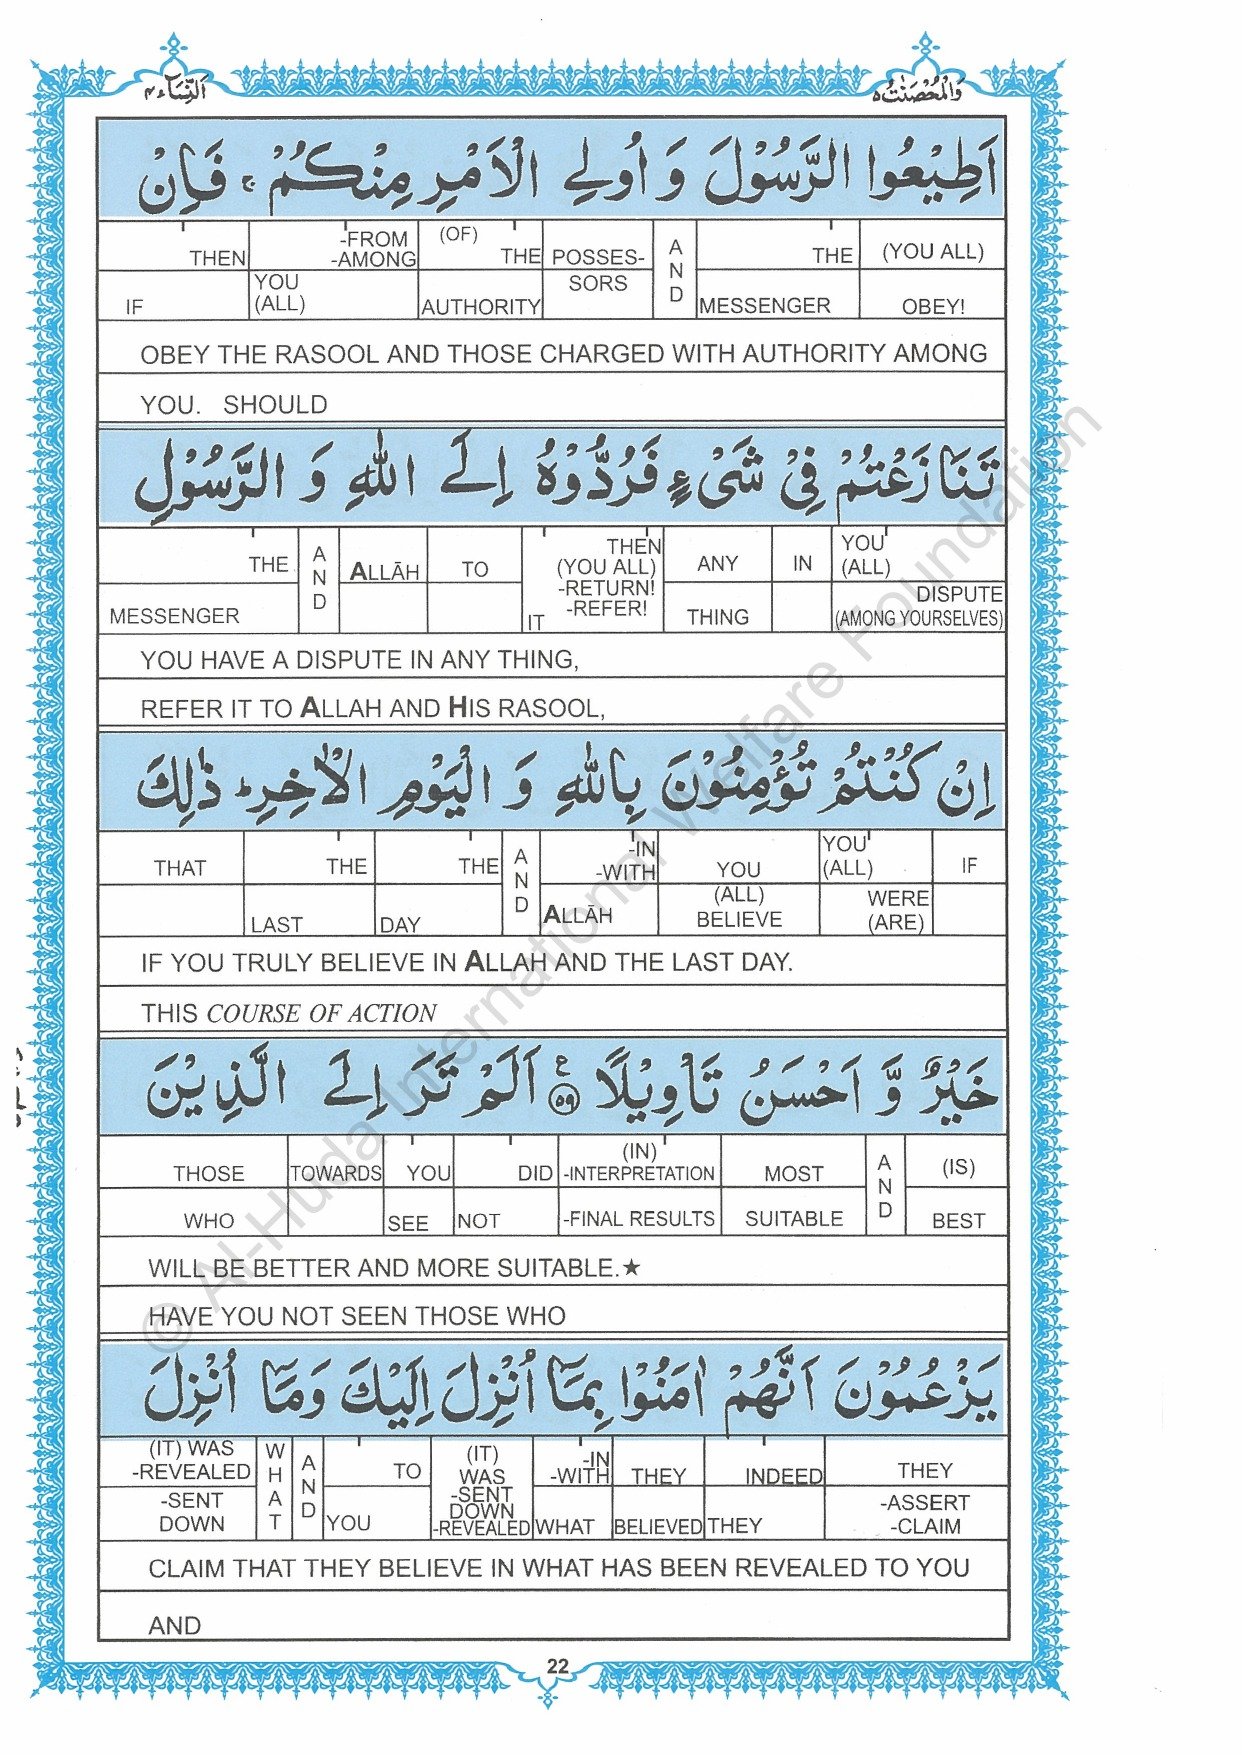 النِّسَآء ٤
وَالْمُحْصَنٰتُ ٥
اَطِيْعُوا الرَّسُوْلَ وَ اُولِي الْاَمْرِ مِنْكُمْ ۚ فَاِنْ
THEN -FROM -AMONG (OF) THE POSSES- AND THE (YOU ALL)
IF YOU (ALL) AUTHORITY SORS MESSENGER OBEY!
OBEY THE RASOOL AND THOSE CHARGED WITH AUTHORITY AMONG
YOU. SHOULD
تَنَازَعْتُمْ فِيْ شَيْءٍ فَرُدُّوْهُ اِلَى اللّٰهِ وَ الرَّسُوْلِ
THE AND ALLĀH TO THEN (YOU ALL) -RETURN! -REFER! ANY IN YOU (ALL)
MESSENGER IT THING DISPUTE (AMONG YOURSELVES)
YOU HAVE A DISPUTE IN ANY THING,
REFER IT TO ALLAH AND HIS RASOOL,
اِنْ كُنْتُمْ تُؤْمِنُوْنَ بِاللّٰهِ وَ الْيَوْمِ الْاٰخِرِ ؕ ذٰلِكَ
THAT THE THE AND -IN -WITH YOU YOU (ALL) IF
LAST DAY ALLĀH (ALL) BELIEVE WERE (ARE)
IF YOU TRULY BELIEVE IN ALLAH AND THE LAST DAY.
THIS COURSE OF ACTION
خَيْرٌ وَّ اَحْسَنُ تَاْوِيْلًا ﴿٥٩﴾ ع اَلَمْ تَرَ اِلَى الَّذِيْنَ
THOSE TOWARDS YOU DID (IN) -INTERPRETATION MOST AND (IS)
WHO SEE NOT -FINAL RESULTS SUITABLE BEST
WILL BE BETTER AND MORE SUITABLE.★
HAVE YOU NOT SEEN THOSE WHO
يَزْعُمُوْنَ اَنَّهُمْ اٰمَنُوْا بِمَآ اُنْزِلَ اِلَيْكَ وَمَآ اُنْزِلَ
(IT) WAS -REVEALED WHAT AND TO (IT) WAS -SENT DOWN -REVEALED -IN -WITH THEY INDEED THEY
-SENT DOWN YOU WHAT BELIEVED THEY -ASSERT -CLAIM
CLAIM THAT THEY BELIEVE IN WHAT HAS BEEN REVEALED TO YOU
AND
22
© Al-Huda International Welfare Foundation